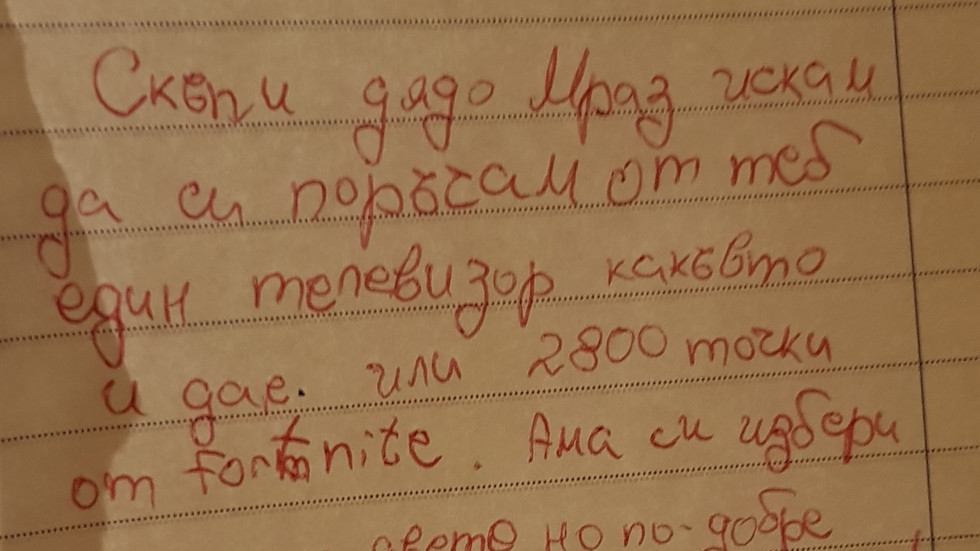 Скъпи дядо Мраз искам
да си поръчам от теб
един телевизор какъвто
и дае. или 2800 точки
от fortnite. Ама си избери
но по-добре